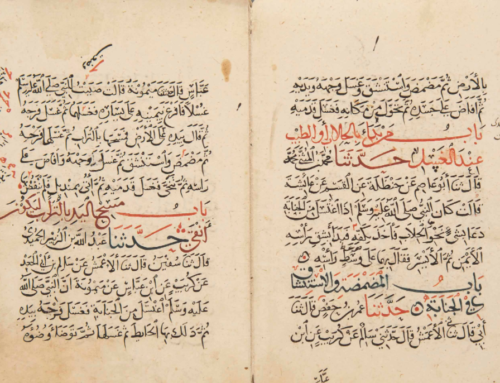 بالارض ثم مضمض واستنشق وغسل وجهه ويديه
ثم افاض على جسده ثم تحول من مكانه فغسل قدميه
باب من بدأ بالحلاب او الطيب
عند الغسل حدثنا محمد بن المثنى
قال ثنا ابو عاصم عن حنظلة عن القسم عن عائشة
قالت كان النبي صلى الله عليه وسلم اذا اغتسل من الجنابة
دعا بشيء نحو الحلاب فاخذ بكفيه فبدأ بشق راسه
الايمن ثم الايسر فقال بهما على وسط راسه
باب المضمضة والاستنشاق
في الجنابة حدثنا عمر بن حفص قال ثنا
ابي قال ثنا الاعمش قال حدثني سالم عن كريب عن ابن
عباس
عباس قال ثنا ميمونة قالت صببت للنبي صلى الله عليه وسلم
غسلا فافرغ بيمينه على يساره فغسلهما ثم غسل فرجه
ثم قال بيده على الارض فمسحها بالتراب ثم غسلها
ثم مضمض واستنشق ثم غسل وجهه وافاض على
راسه ثم تنحى فغسل قدميه ثم اتى بمنديل فلم ينفض
باب مسح اليد بالتراب لتكون
انقى حدثنا عبد الله بن الزبير الحميدي
قال ثنا سفين قال ثنا الاعمش عن سالم بن ابي الجعد
عن كريب عن ابن عباس عن ميمونة ان النبي صلى الله
عليه وسلم اغتسل من الجنابة فغسل فرجه بيده
ثم دلك بها الحائط ثم غسلها ثم توضا وضوءه